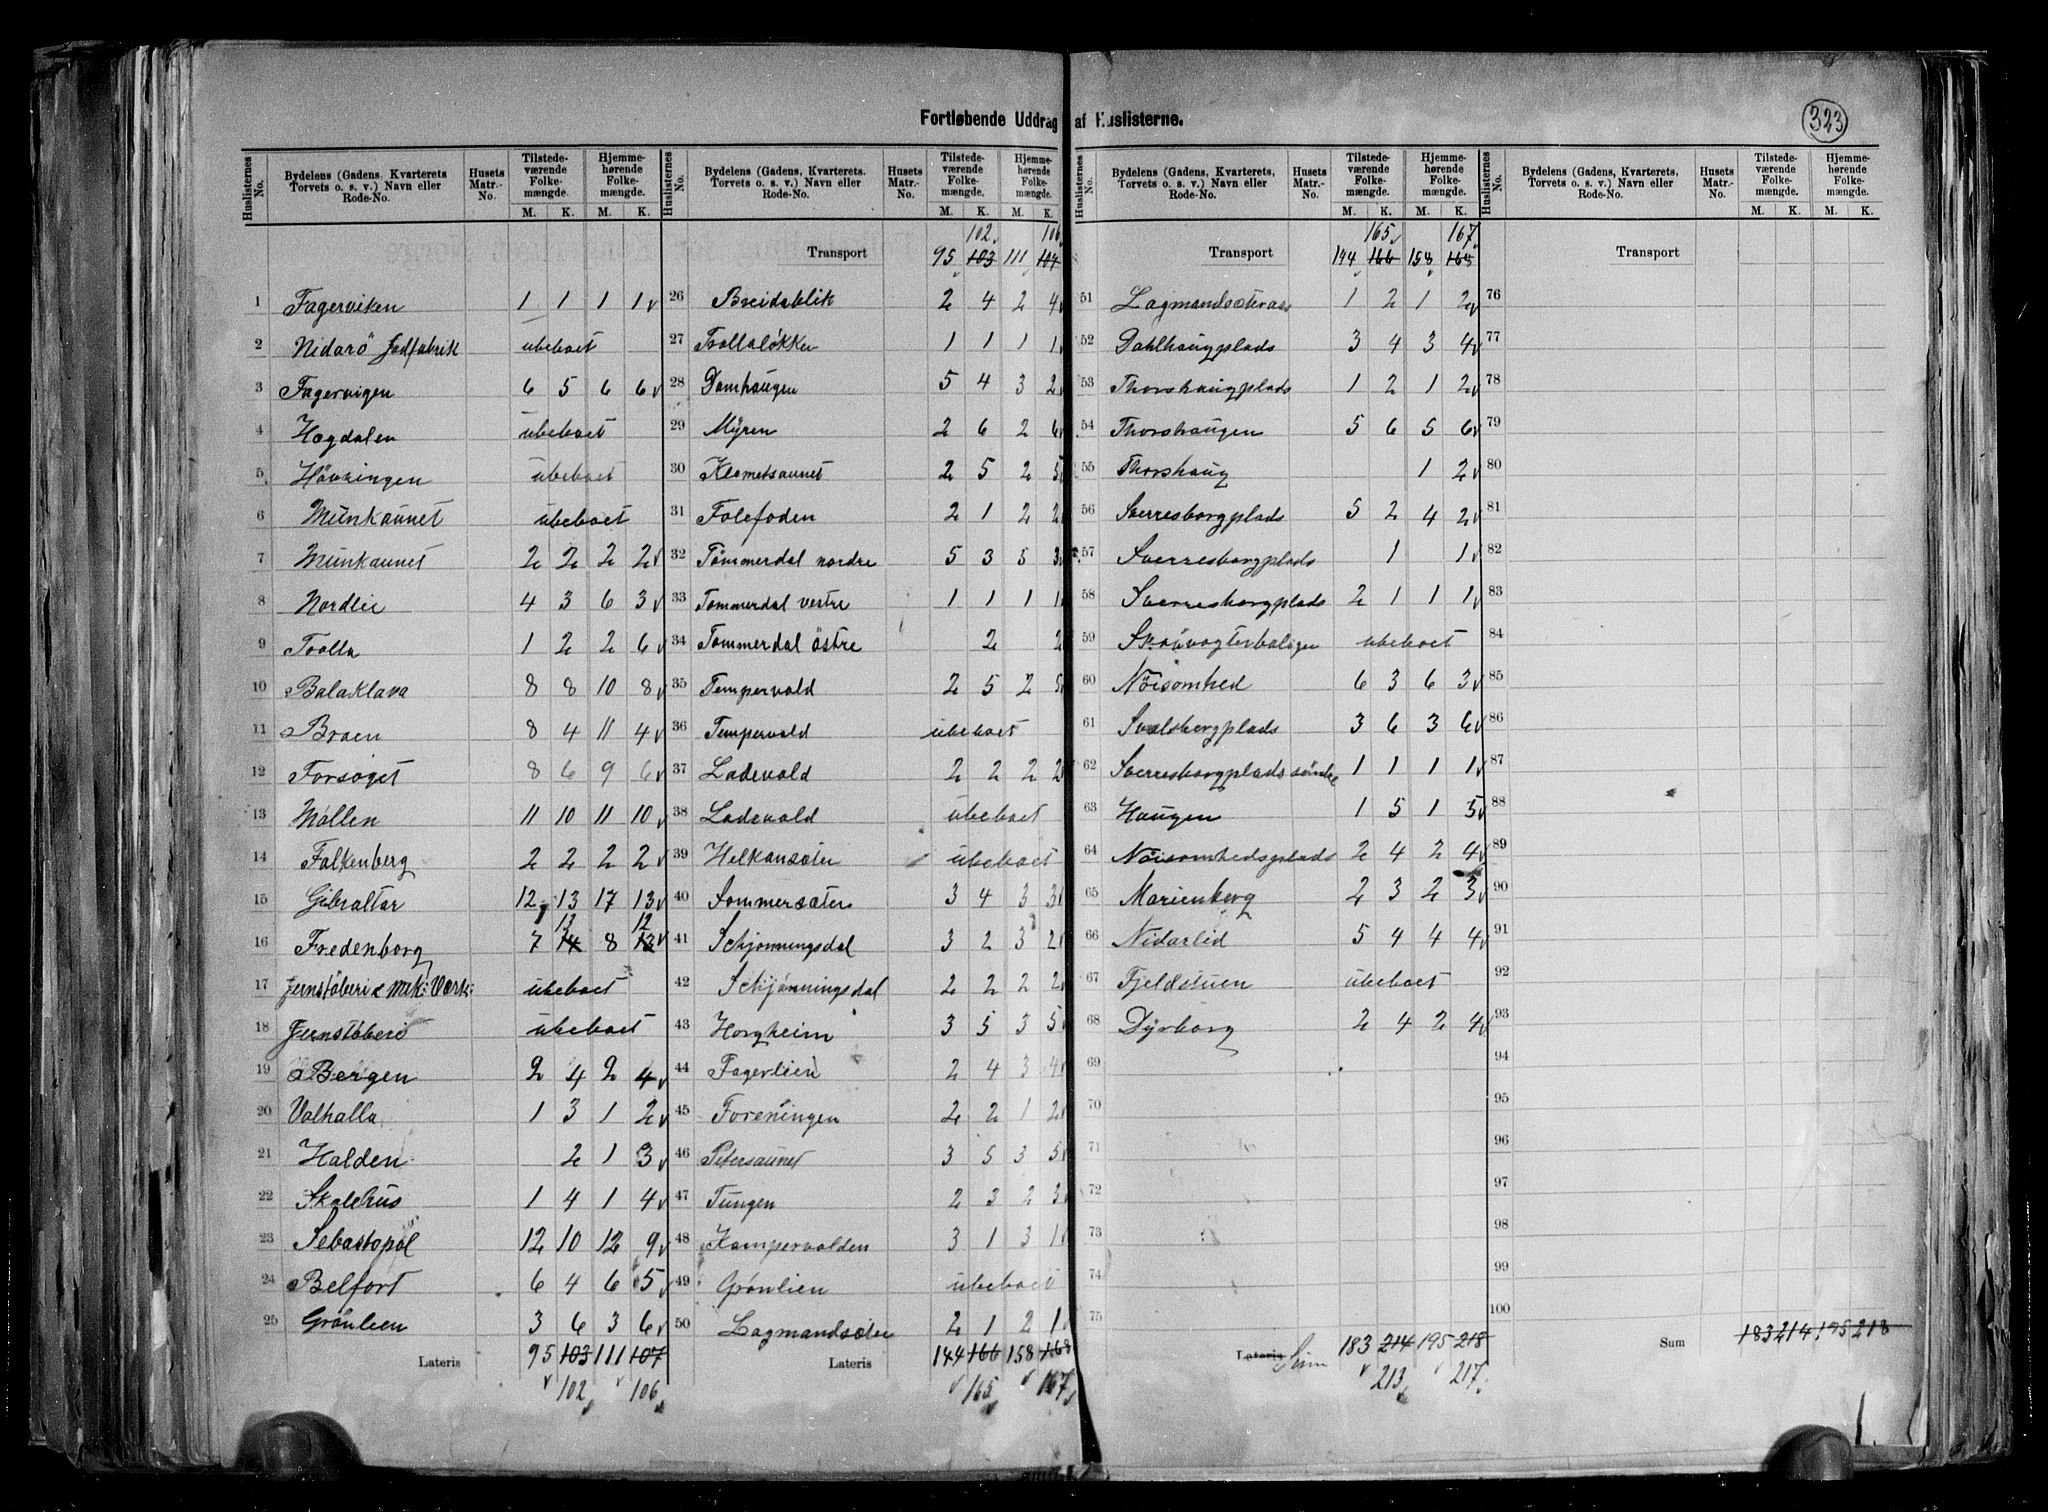 Fortløbende Uddrag af Huslisterne.
323
Huslisternes No. | Bydelens (Gadens, Kvarterets, Torvets o. s. v.) Navn eller Rode-No. | Husets Matr.-No. | Tilstedeværende Folkemængde. M. K. | Hjemmehørende Folkemængde. M. K.
1 Fagerviken 1 1 1 1
2 Nidarö Jodfabrik ubeboet
3 Fagervigen 6 5 6 6
4 Hægdalen ubeboet
5 Hövringen ubeboet
6 Munkaunet ubeboet
7 Munkaunet 2 2 2 2
8 Nordlie 4 3 6 3
9 Trolla 1 2 2 6
10 Balaklava 8 8 10 8
11 Braen 8 4 11 4
12 Forsøget 8 6 9 6
13 Møllen 11 10 11 10
14 Falkenberg 2 2 2 2
15 Gibraltar 12 13 17 13
16 Fredenborg 7 14 13 8 13 12
17 Jernstøberi & mek: Værk: ubeboet
18 Jernstøberi ubeboet
19 Bergen 2 4 2 4
20 Valhalla 1 3 1 2
21 Halden 2 1 3
22 Skalehus 1 4 1 4
23 Sebastopol 12 10 12 9
24 Belfort 6 4 6 5
25 Grönlien 3 6 3 6
Lateris 95 103 111 107
102 106
Huslisternes No. | Bydelens (Gadens, Kvarterets, Torvets o. s. v.) Navn eller Rode-No. | Husets Matr.-No. | Tilstedeværende Folkemængde. M. K. | Hjemmehørende Folkemængde. M. K.
102 106
Transport 95 103 111 107
26 Breidablik 2 4 2 4
27 Trolla­løkken 1 1 1 1
28 Damhaugen 5 4 3 2
29 Myren 2 6 2 6
30 Klemetsaunet 2 5 2 5
31 Folefoden 2 1 2 2
32 Tømmerdal nordre 5 3 5 3
33 Tømmerdal vestre 1 1 1 1
34 Tømmerdal östre 2 2
35 Tempervold 2 5 2 5
36 Tempervold ubeboet
37 Ladevold 2 2 2 2
38 Ladevold ubeboet
39 Helkansæter ubeboet
40 Sommersæter 3 4 3 3
41 Schjønningsdal 3 2 3 2
42 Schjønningsdal 2 2 2 2
43 Horgheim 3 5 3 5
44 Fagerlien 2 4 3 4
45 Foreningen 2 2 1 2
46 Petersaunet 3 5 3 5
47 Tungen 2 3 2 3
48 Kampervolden 3 1 3 1
49 Grønlien ubeboet
50 Lagmandsæter 2 1 2 1
Lateris 144 166 158 168
165 167
Huslisternes No. | Bydelens (Gadens, Kvarterets, Torvets o. s. v.) Navn eller Rode-No. | Husets Matr.-No. | Tilstedeværende Folkemængde. M. K. | Hjemmehørende Folkemængde. M. K.
165 167
Transport 144 166 158 168
51 1 2 1 2
52 Dahlhaugplads 3 4 3 4
53 Thorshaugplads 1 2 1 2
54 Thorshaugen 5 6 5 6
55 Thorshaug 1 2
56 Sverresborgplads 5 2 4 2
57 Sverresborgplads 1 1
58 Sverresborgplads 2 1 1 1
59 Skovvogterboligen ubeboet
60 Nöisomhed 6 3 6 3
61 3 6 3 6
62 Sverresborgplads söndre 1 1 1 1
63 Haugen 1 5 1 5
64 Nöisomhedsplads 2 4 2 4
65 Marienberg 2 3 2 3
66 Nidarlid 5 4 4 4
67 Fjeldstuen ubeboet
68 Dyrborg 2 4 2 4
69
70
71
72
73
74
75
Lateris Sum 183 214 195 218
213 217
Huslisternes No. | Bydelens (Gadens, Kvarterets, Torvets o. s. v.) Navn eller Rode-No. | Husets Matr.-No. | Tilstedeværende Folkemængde. M. K. | Hjemmehørende Folkemængde. M. K.
Transport
76
77
78
79
80
81
82
83
84
85
86
87
88
89
90
91
92
93
94
95
96
97
98
99
100
Sum 183 214 195 218